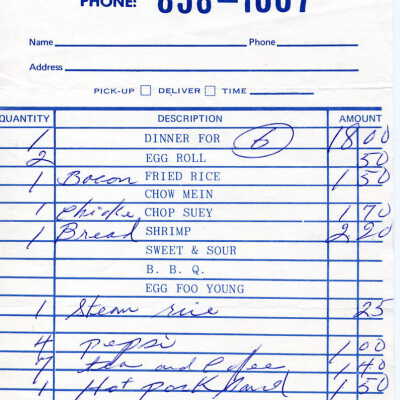 PHONE: 838-1007
Name Phone
Address
PICK-UP DELIVER TIME
QUANTITY DESCRIPTION AMOUNT
1 DINNER FOR 6 18 00
2 EGG ROLL 50
1 Bacon FRIED RICE 1 50
CHOW MEIN
1 Chicke CHOP SUEY 1 70
1 Bread SHRIMP 2 20
SWEET & SOUR
B. B. Q.
EGG FOO YOUNG
1 Steam rice 25
4 pepsi 1 00
7 tea and Cofee 1 40
1 Hot pork 1 50